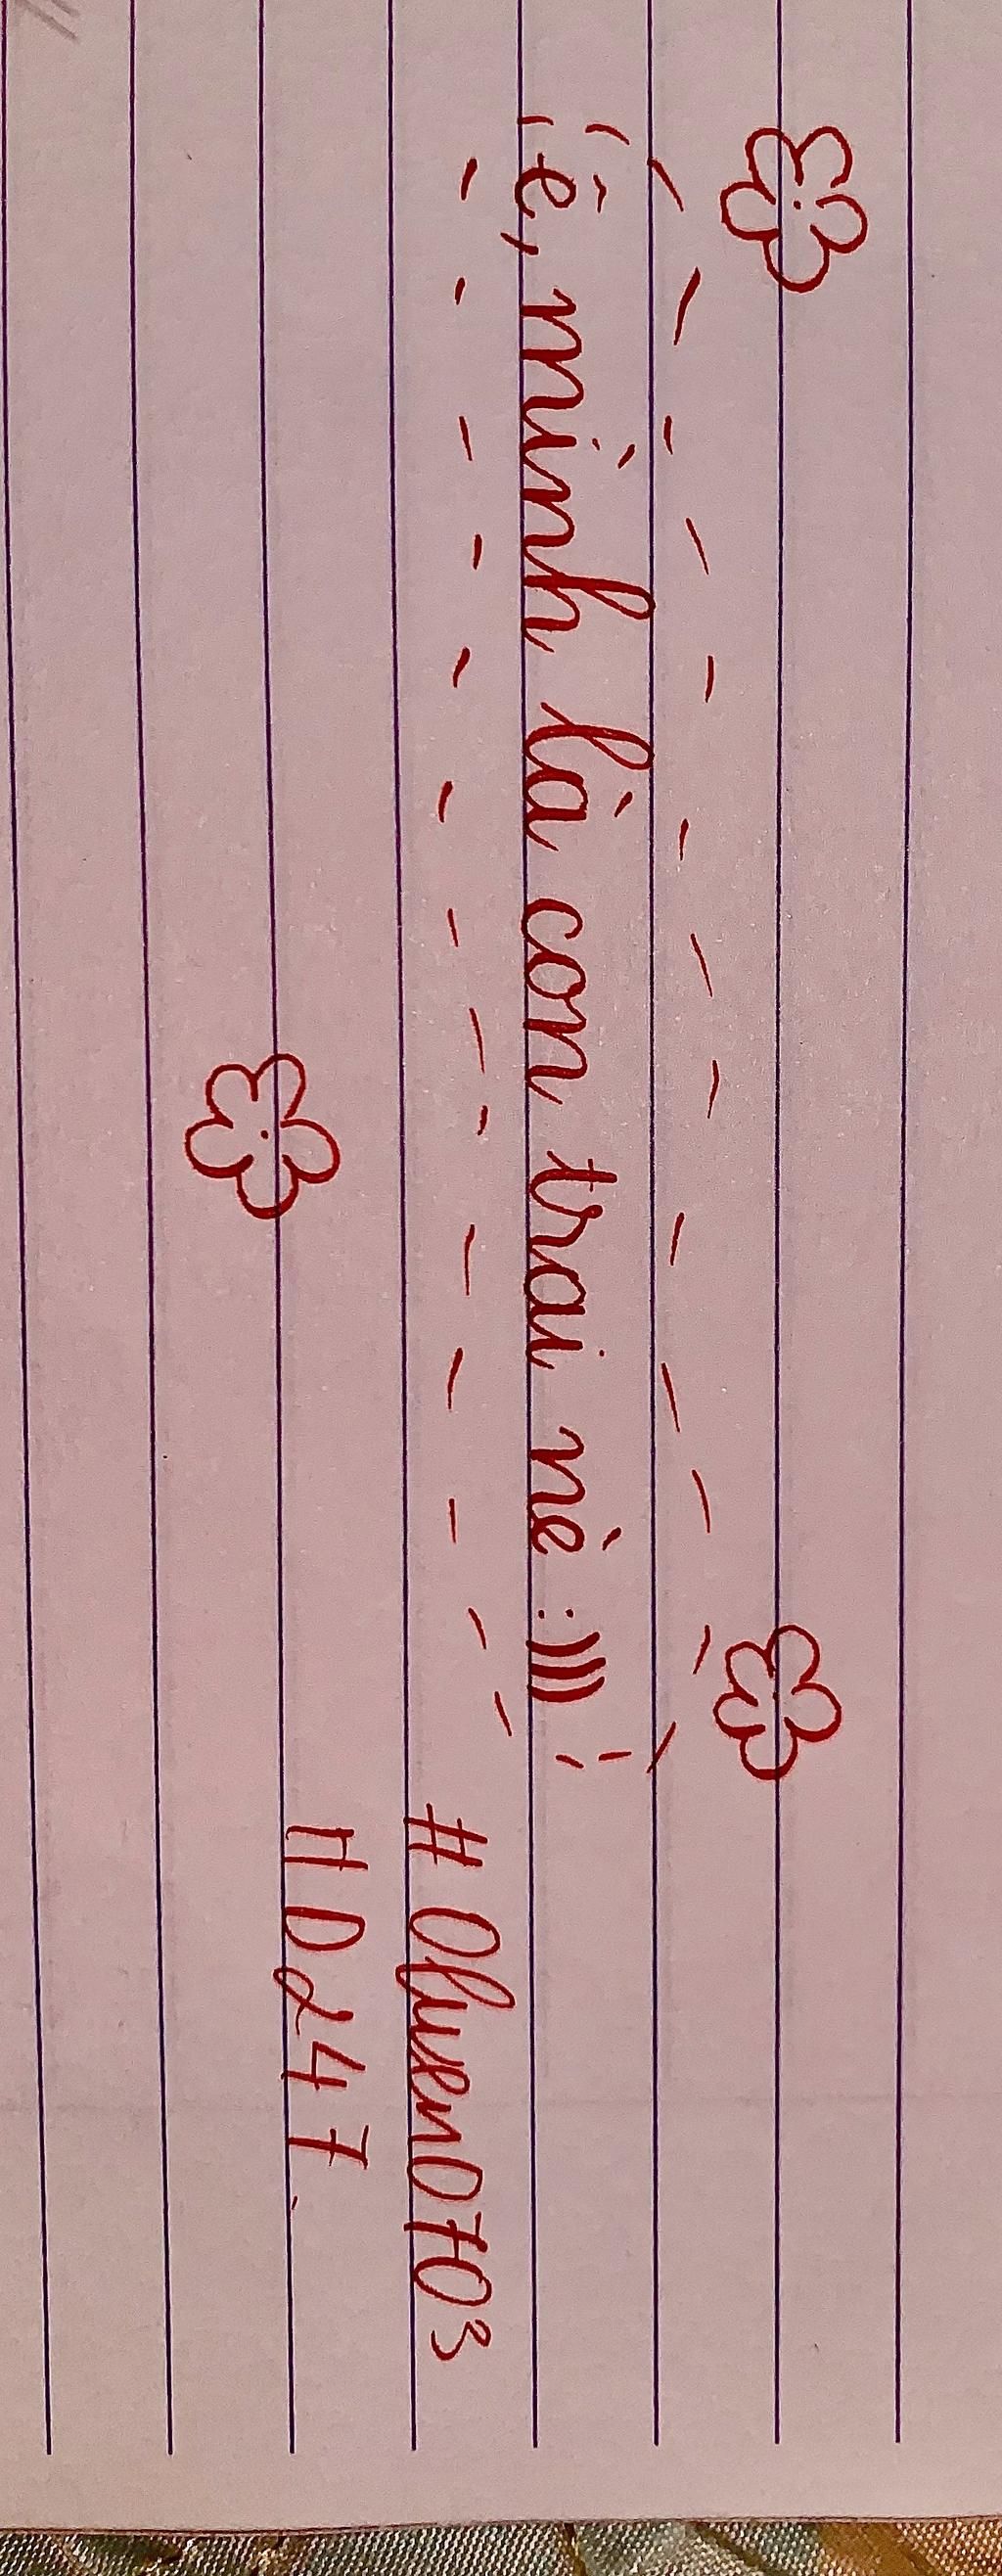 ê, mình là con trai nè :)))
#0luxen0703
HD247.